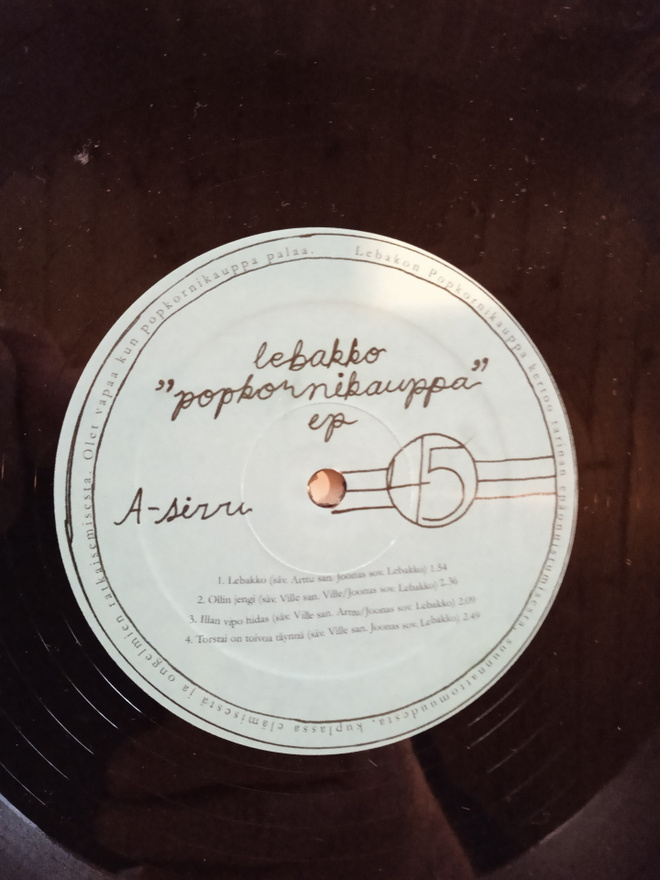 lebakko
”popkornikauppa”
ep
45
A-sirru
1. Lebakko (säv. Arttu san. Joonas sov. Lebakko) 1.54
2. Ollin jengi (säv. Ville san. Ville/Joonas sov. Lebakko) 2.36
3. Illan vipo hidas (säv. Ville san. Arttu/Joonas sov. Lebakko) 2.09
4. Torstai on toivoa täynnä (säv. Ville san. Joonas sov. Lebakko) 2.49
Lebakon Popkornikauppa kertoo tarinan epäonnistumisesta, suunnattomuudesta, kuplassa elämisestä ja ongelmien ratkaisemisesta. Olet vapaa kun popkornikauppa palaa.